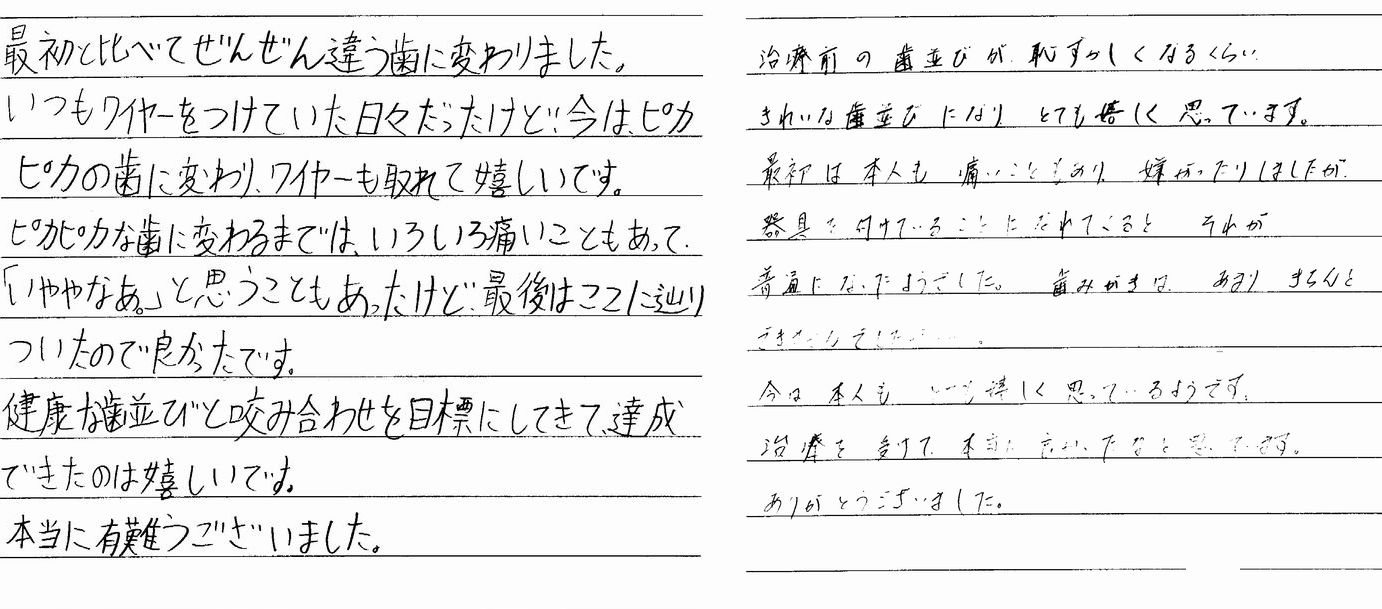 最初と比べてぜんぜん違う歯に変わりました。
いつもワイヤーをつけていた日々だったけど、今は、ピカ
ピカの歯に変わり、ワイヤーも取れて嬉しいです。
ピカピカな歯に変わるまでは、いろいろ痛いこともあって、
「いややなあ。」と思うこともあったけど、最後はここに辿り
ついたので良かったです。
健康な歯並びと咬み合わせを目標にしてきて、達成
できたのは嬉しいです。
本当に有難うございました。
治療前の歯並びが、恥ずかしくなるくらい
きれいな歯並びになり とても嬉しく思っています。
最初は本人も 痛いこともあり 嫌がったりしましたが、
器具を付けていることになれてくると それが
普通になったようでした。 歯みがきは、あまり きちんと
できませんでした
今は 本人も 嬉しく思っているようです。
治療を受けて 本当に 良かったなと思っています。
ありがとうございました。